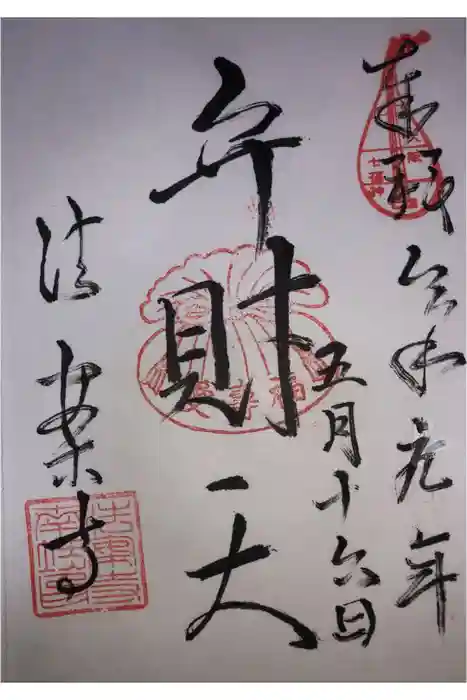 奉拝
令和元年
五月十六日
弁財天
法案寺